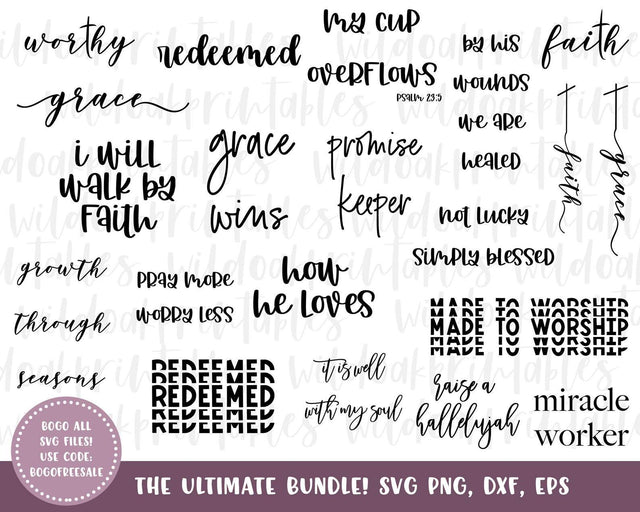 worthy
redeemed
my cup
overflows
PSALM 23:5
by his
wounds
we are
healed
faith
grace
i will
walk by
faith
grace
wins
promise
keeper
faith
grace
not lucky
simply blessed
growth
through
seasons
pray more
worry less
how
he loves
MADE TO WORSHIP
MADE TO WORSHIP
MADE TO WORSHIP
REDEEMED
REDEEMED
REDEEMED
REDEEMED
REDEEMED
it is well
with my soul
raise a
hallelujah
miracle
worker
BOGO ALL
SVG FILES!
USE CODE:
BOGOFREESALE
THE ULTIMATE BUNDLE! SVG PNG, DXF, EPS
wildoakprintables